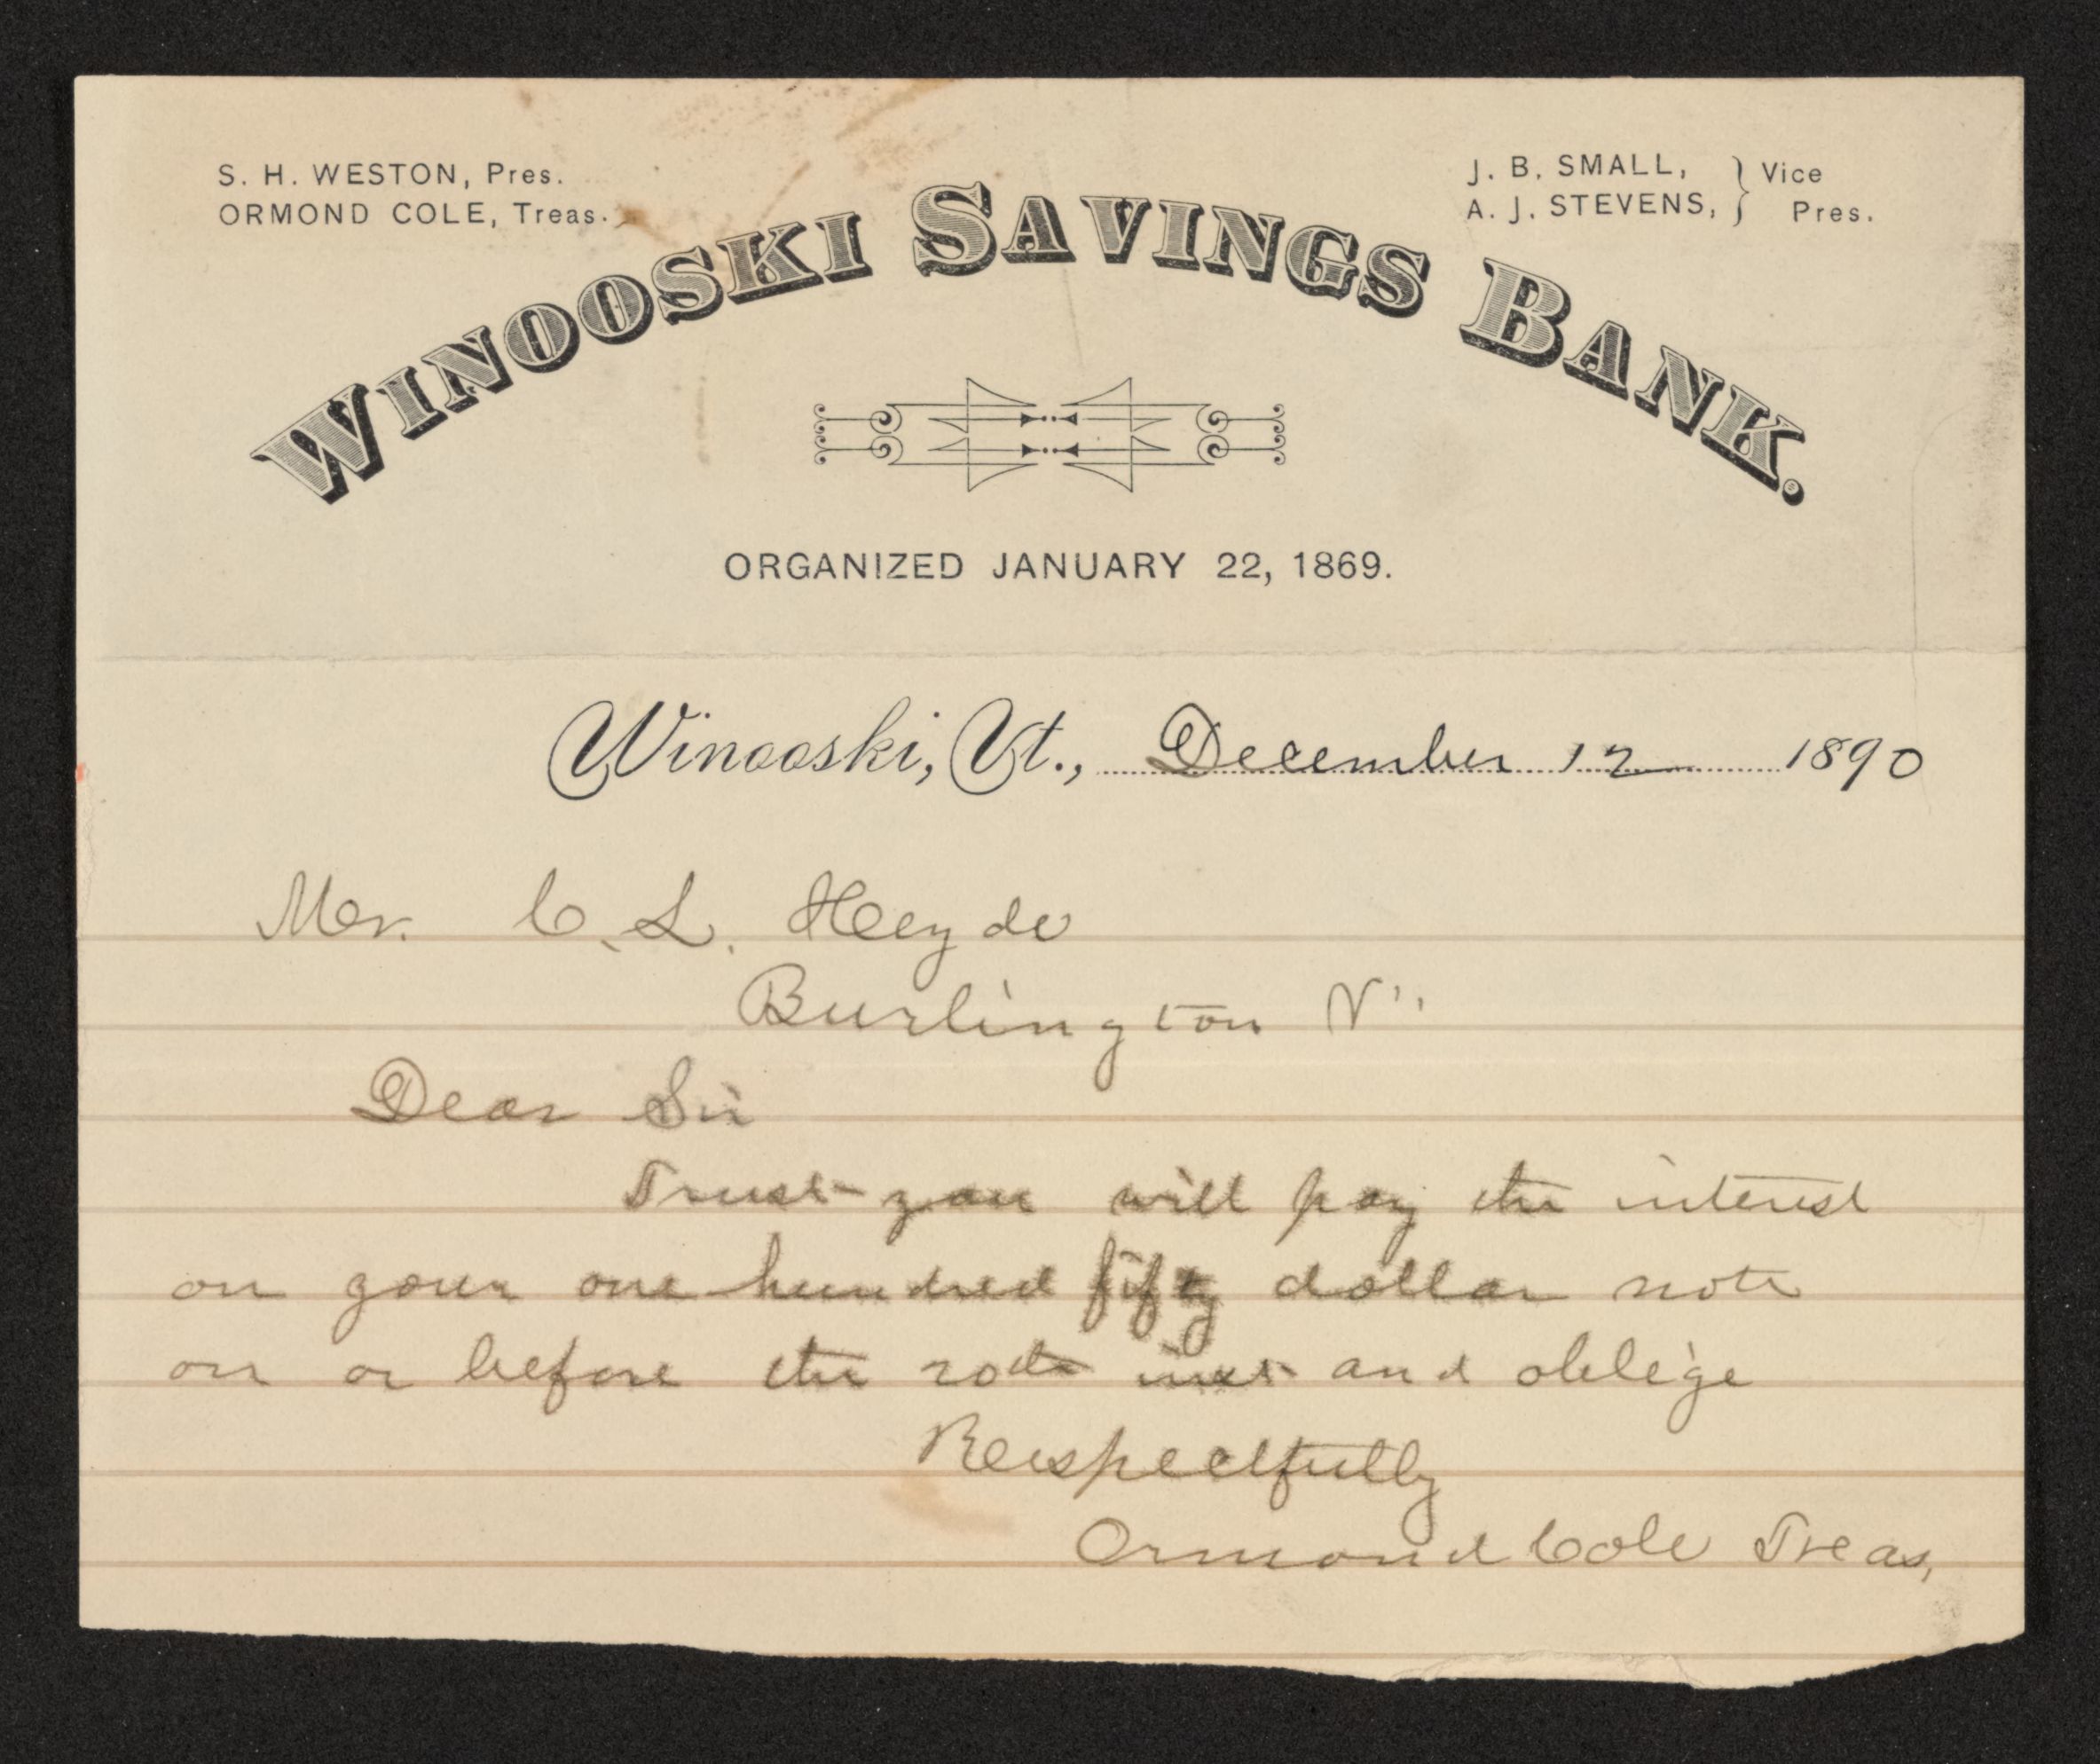 S. H. WESTON, Pres.
ORMOND COLE, Treas.
J. B. SMALL, } Vice
A. J. STEVENS, } Pres.
WINOOSKI SAVINGS BANK.
ORGANIZED JANUARY 22, 1869.
Winooski, Vt., December 12 1890
Mr. C. L. Heyde
Burlington Vt
Dear Sir
Trust you will pay the interest
on your one hundred fifty dollar note
on or before the 20th inst and oblige
Respectfully
Ormond Cole Treas,